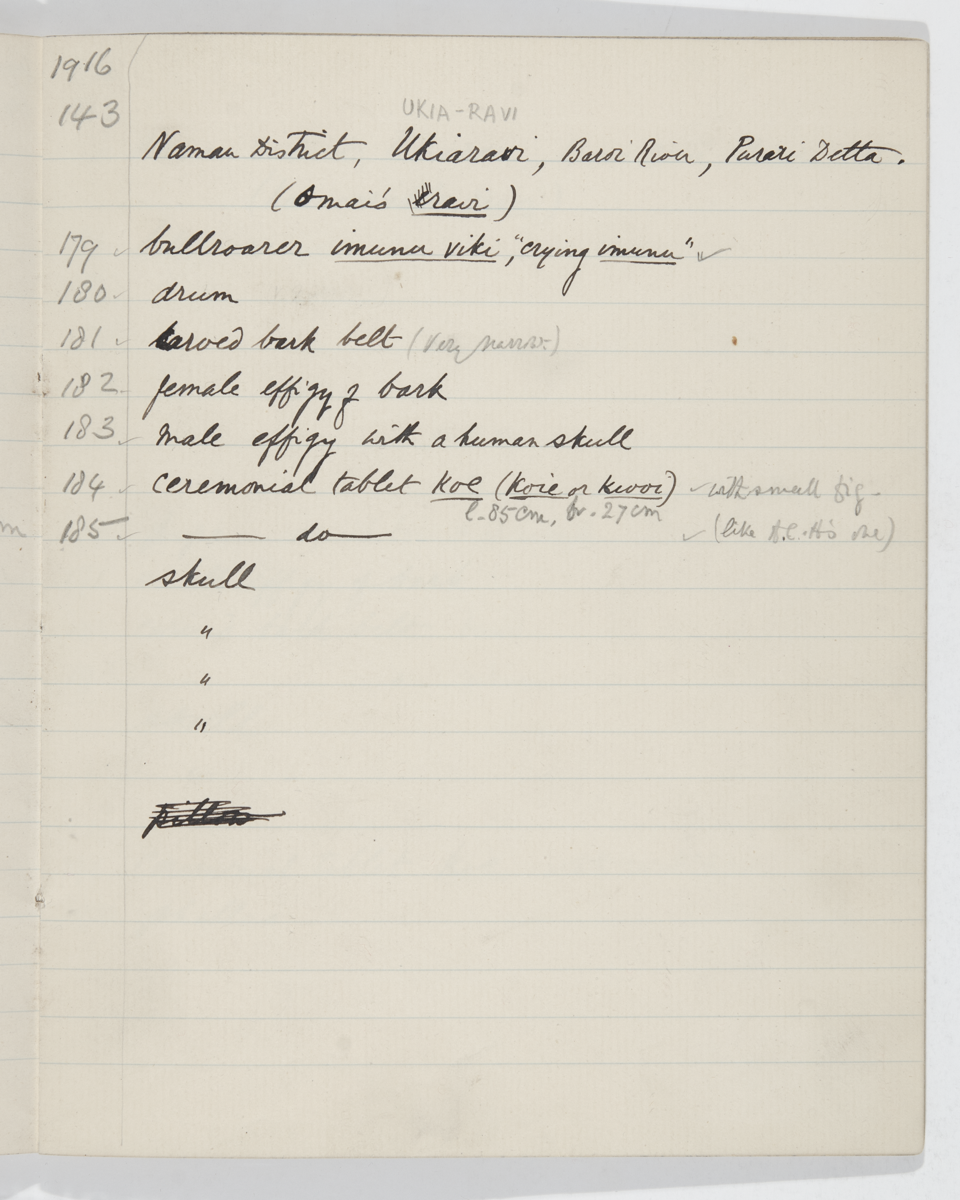 1916
143 UKIA-RAVI
Namau District, Ukiaravi, Baroi River, Purari Delta.
(Omai's ravi)
179 ✓ bullroarer imunu viki, "crying imunu" ✓
180 drum
181 ✓ carved bark belt (very narrow)
182 female effigy of bark
183 ✓ male effigy with a human skull
184 ✓ ceremonial tablet koe (koie or kwoi) ✓ with small fig.
l. 85cm, br. 27cm
185 ✓ — do — ✓ (like A.C.H's one)
skull
"
"
"